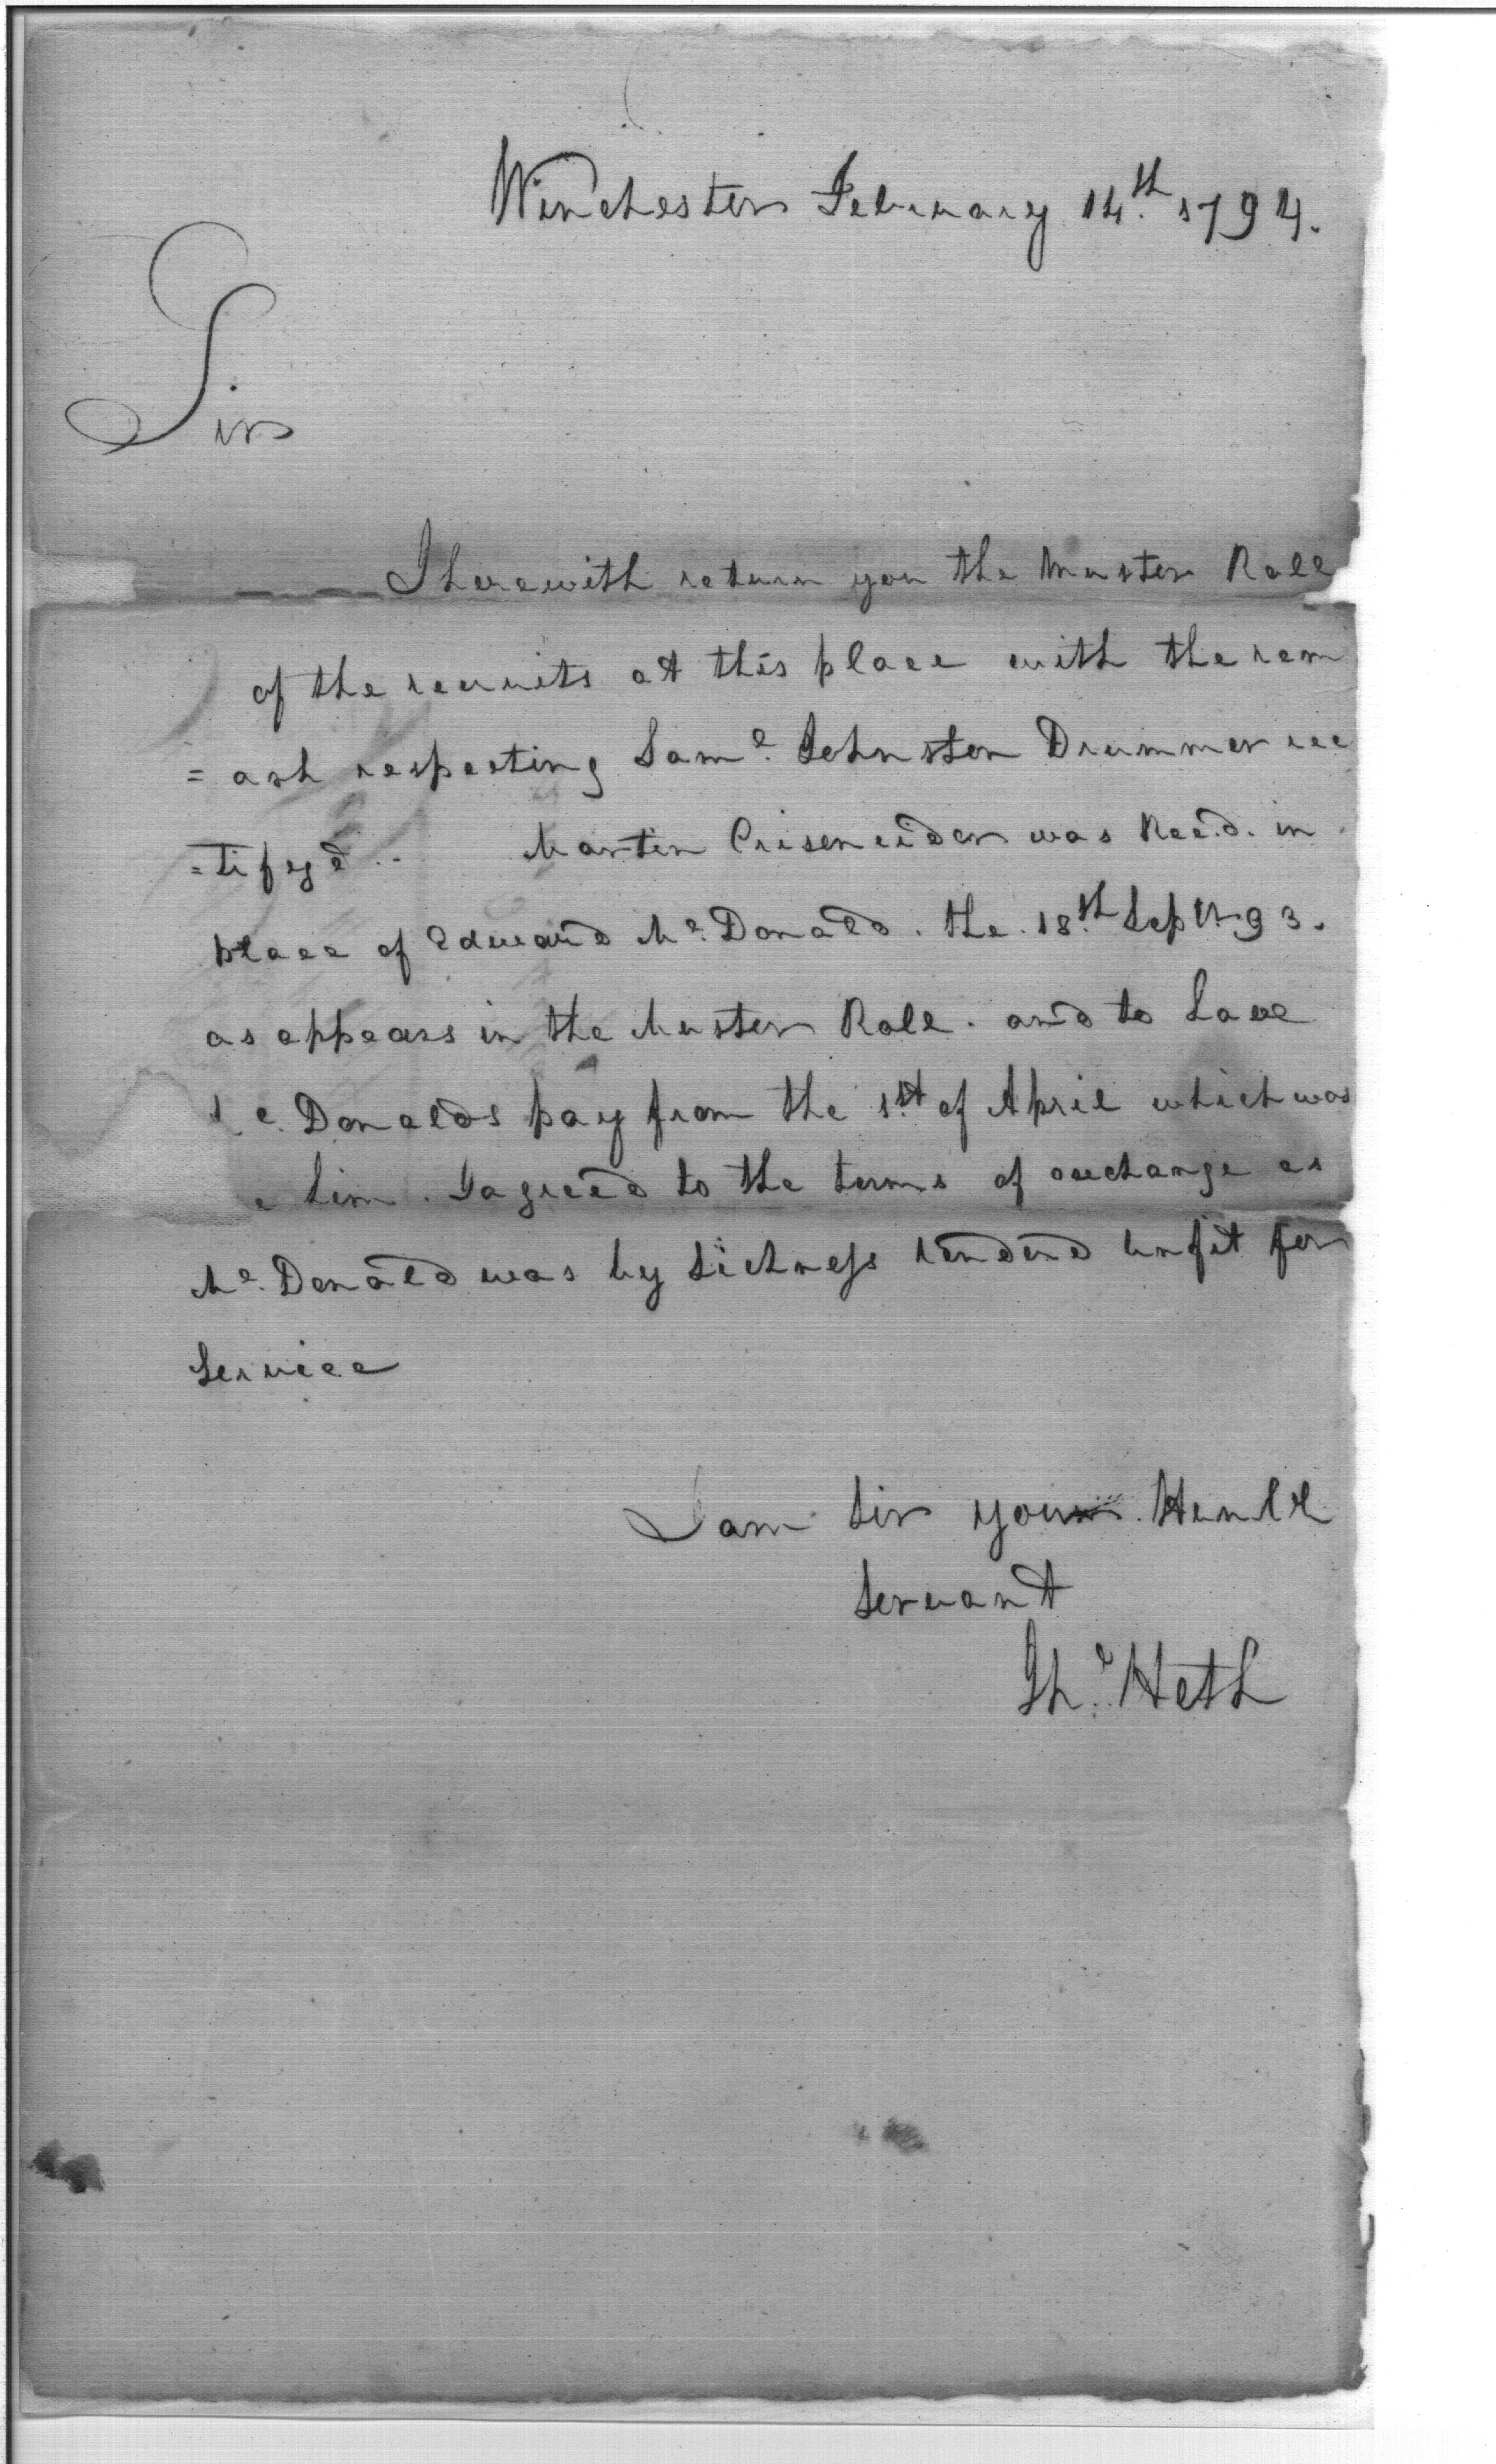 Winchester February 14.th 1794.
Sir
I herewith return you the Muster Roll
of the recruits at this place with the rem
=ark respecting Saml. Johnston Drummer rec
=tifyed..   Martin was Recd. in
place of Edward Mc. Donald. the. 18.th Sept 93.
as appears in the Muster Roll. and to have
c. Donalds pay from the 1st of April which was
e him. I agreed to the terms of exchange as
Mc. Donald was by Sickness rendered unfit for
Service
I am Sir your Humble
Servant
Jn. Heth